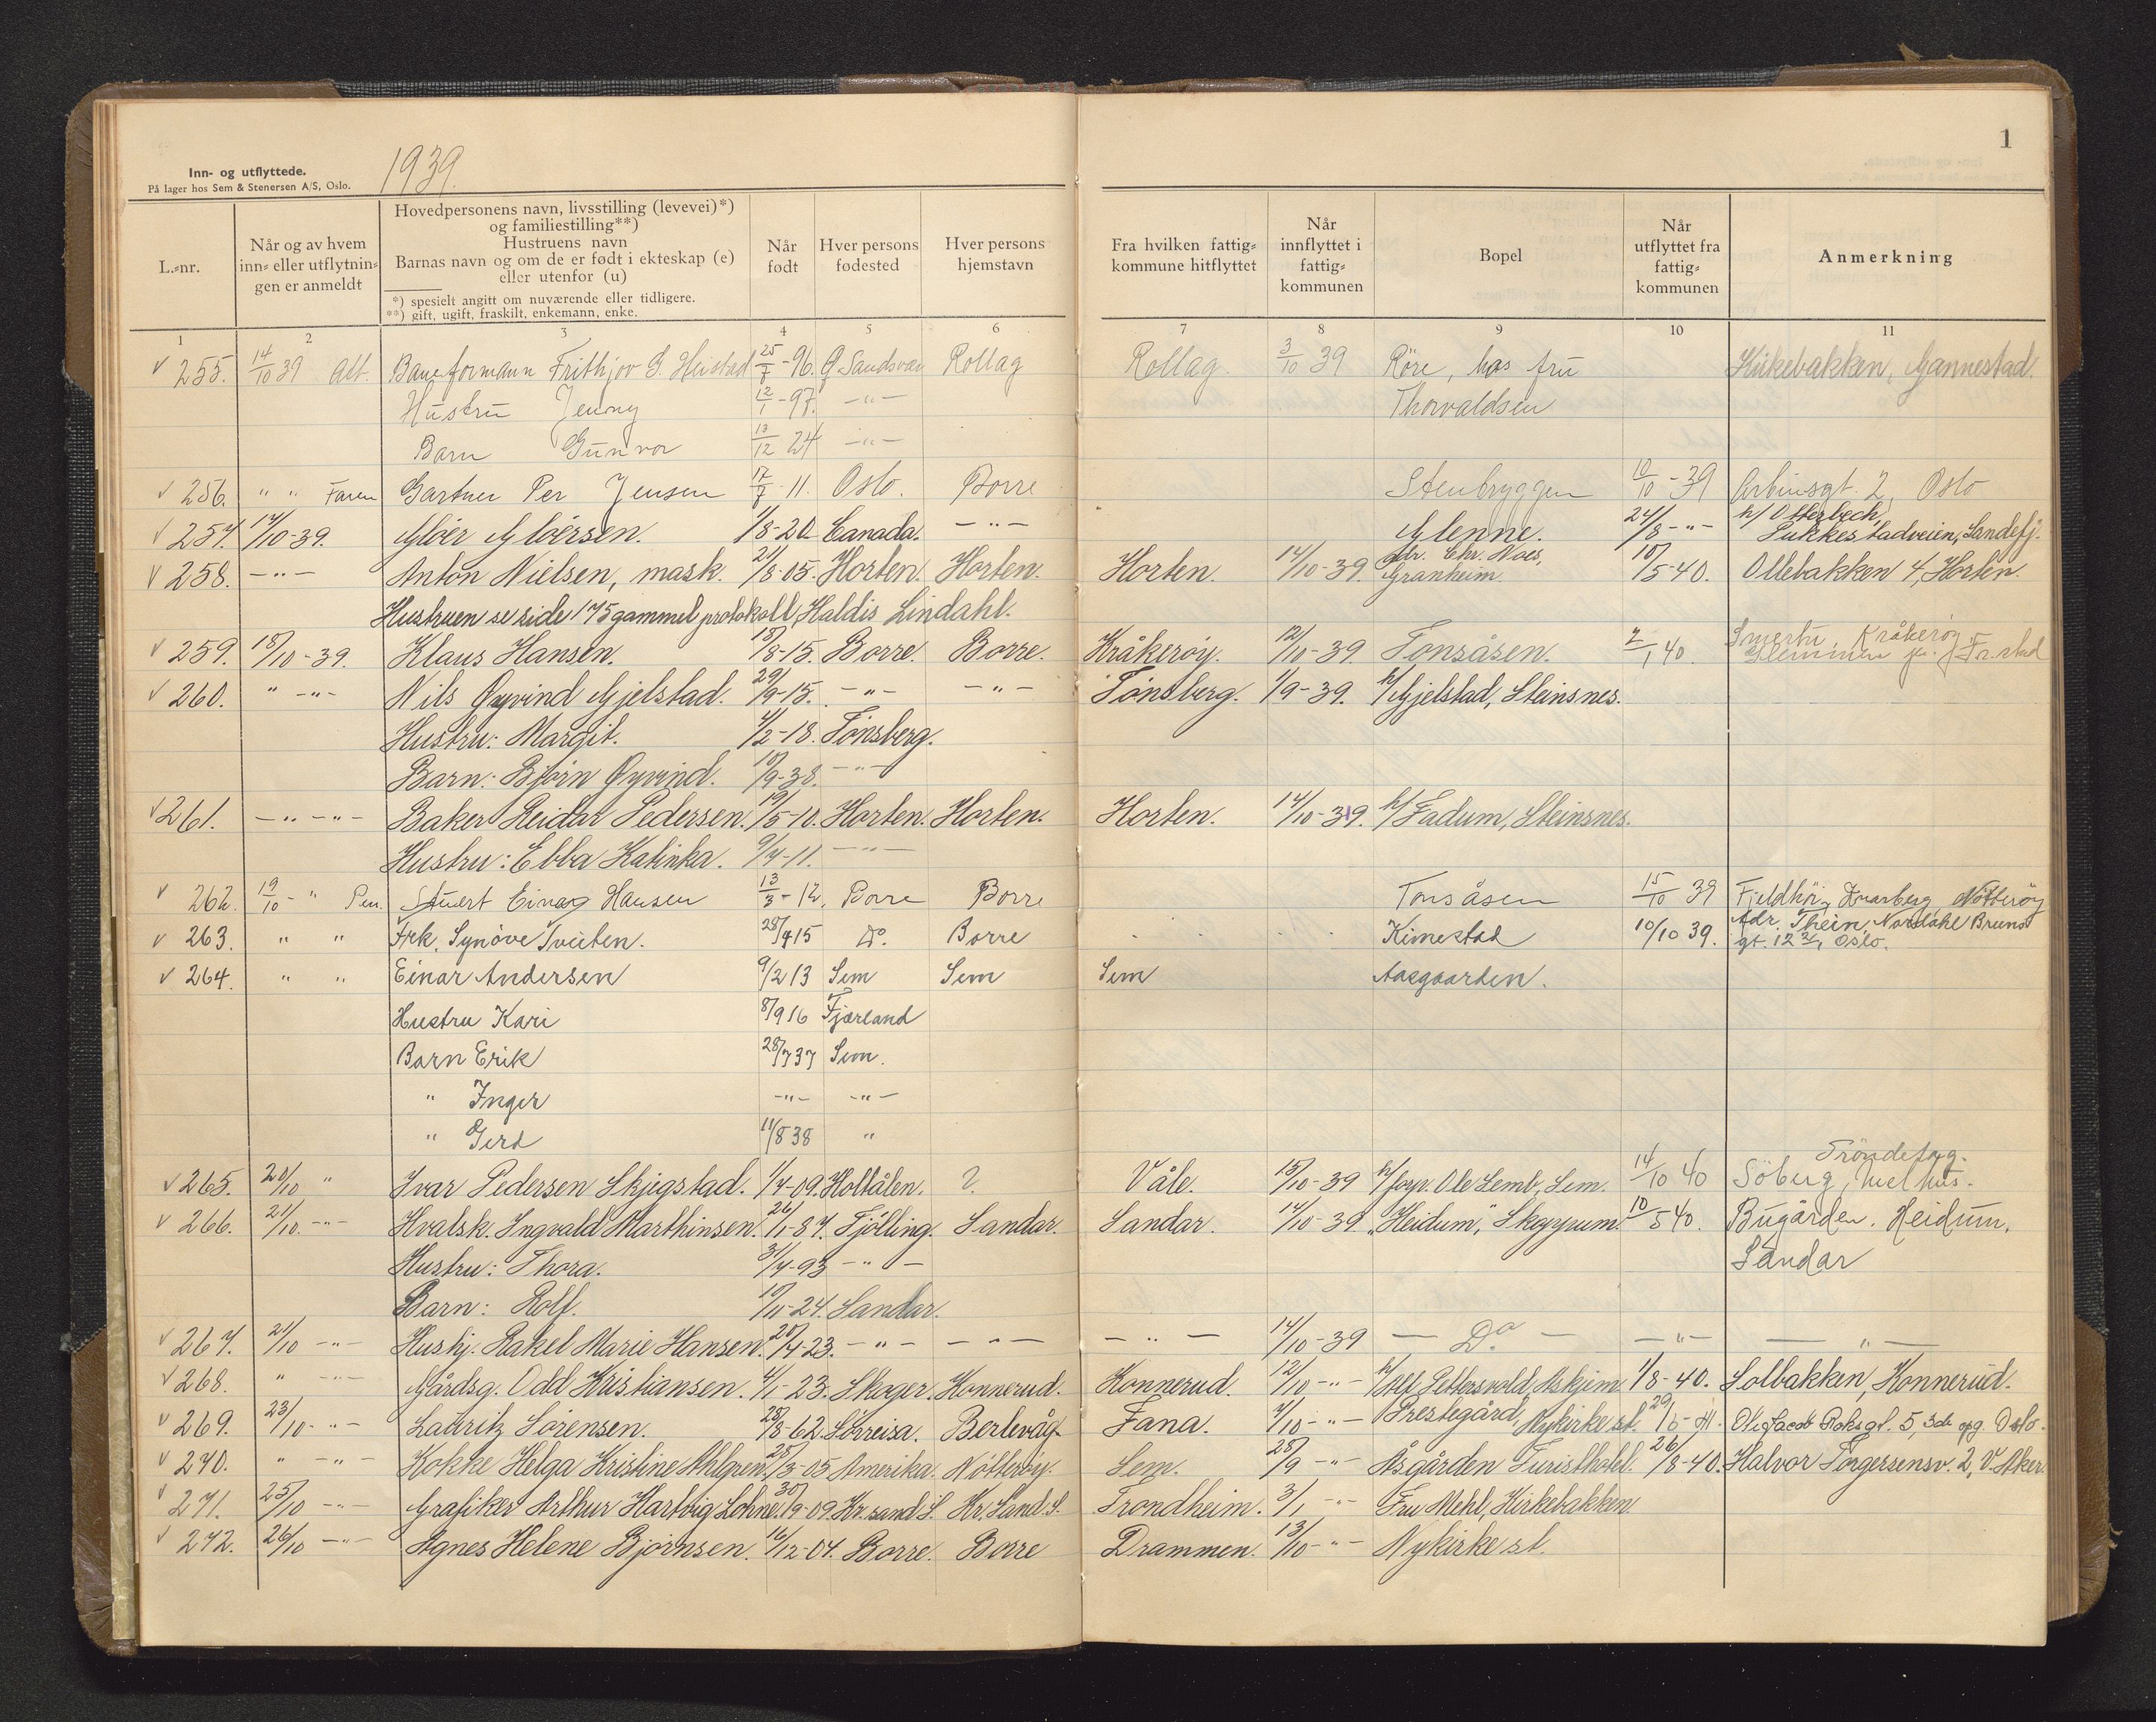 1
Inn- og utflyttede.
På lager hos Sem & Stenersen A/S, Oslo.
1939.
L.-nr.
Når og av hvem inn- eller utflytningen er anmeldt
Hovedpersonens navn, livsstilling (levevei)*) og familiestilling**)
Hustruens navn
Barnas navn og om de er født i ekteskap (e) eller utenfor (u)
*) spesielt angitt om nuværende eller tidligere.
**) gift, ugift, fraskilt, enkemann, enke.
Når født
Hver persons fødested
Hver persons hjemstavn
Fra hvilken fattigkommune hitflyttet
Når innflyttet i fattigkommunen
Bopel
Når utflyttet fra fattigkommunen
Anmerkning
1 2 3 4 5 6 7 8 9 10 11
255. 14/10 39 Att. Baneformann Frithjov G. Heistad 25/7-96. Ø. Sandsvær Rollag Rollag. 3/10 39 Röre, hos fru Kirkebakken, Gannestad.
Hustru Jenny 12/1-97. -"- Thorvaldsen
Barn Gunvor 13/12 24 -"-
256. " " Faren Gartner Per Jensen 17/7-11. Oslo. Borre Stenbryggen 10/10-39 Arbinsgt. 2, Oslo
257. 14/10-39. Mövsen. 1/8-20. Canada. -"- Glenne. 24/8-"- h/ Otterbech, Pukkestadveien, Sandefj.
258. -"- Anton Nielsen, mask. 21/8-05. Horten. Horten. Horten. 14/10-39. Adr. Chr. Naes, Granheim. 15/5-40. Ollebakken 4, Horten.
Hustruen se side 175 gammel protokoll, Haldis Lindahl.
259. 18/10-39. Klaus Hansen. 18/8-15. Borre. Borre. Kråkerøy. 12/10-39. Tonsåsen. 2/1 40. Smertu, Kråkerøy.
260. " -"- Nils Øyvind Gjelstad. 29/9-15. -"- -"- Tønsberg. 1/9-39. h/ Gjelstad, Steinsnes.
Hustru: Margit. 4/2-18. Tønsberg.
Barn: Bjørn Øyvind. 15/9-38. -"-
261. -"- -"- Baker Reidar Pedersen. 19/5-10. Horten. Horten. Horten. 14/10-39. h/ Fadum, Steinsnes.
Hustru: Ebba Katinka. 9/4-11. -"-
262. 19/10-" Pen. Stuert Einar Hansen 13/3-12. Borre Borre Tonsåsen 15/10 39 Fjeldhöi, Kvarberg, Nötteröy
263. " " Frk. Synöve Tveiten. 28/4 15 Do. Borre Kimestad 10/10 39. Adr. Thein, Nordahl Bruns gt. 12 3/4, Oslo.
264. " " Einar Andersen 9/2 13 Sem Sem Sem Aasgaarden.
Hustru Kari 8/9 16 Fjærland
Barn Erik 28/7 37 Sem.
" Inger -"- -"-
" Gerd 11/8 38 "
265. 20/10 " Ivar Pedersen Skjegstad. 1/4-09. Holtålen. ? Våle. 15/10-39 h/ forp. Ole Lemb, Sem. 14/10 40 Söberg, Melhus. Tröndelag.
266. 21/10. -"- Hvalsk. Ingvald Marthinsen. 26/1-87. Tjølling. Sandar. Sandar. 14/10-39. "Heidum", Skoppum. 10/5 40. Bugården. Heidum,
Hustru: Thora. 31/4-93 -"- Sandar
Barn: Rolf. 19/10-24. Sandar.
267. 21/10 -"- Hushj. Rakel Marie Hansen. 20/4-23. -"- -"- -"- 14/10-39 - Do. - -"- -"-
268. " -"- Gårdsg. Odd Kristiansen. 4/1-23. Skoger. Konnerud. Konnerud. 12/10-"- h/ Alf Pettersvold, Askjem. 1/8-40. Solbakken, Konnerud.
269. 23/10-"- Lauritz Sørensen. 25/8-62. Sørreisa. Berlevåg. Fana. 4/10-"- Prestegård, Nykirke st. 29/6-41. Ole Jacob Brochs gt. 5, 3die opg. Oslo.
270. " -"- Kokke Helga Kristine Ahlgren. 25/3-05 Amerika. Nøtterøy. Sem. 28/9-"- Åsgården Turisthotel. 26/8-40. Halvor Torgersensv. 2, V. Aker.
271. 25/10 -"- Grafiker Arthur Hartvig Lohne. 30/9-09. Kr.sand S. Kr. Sand. S. Trondheim. 3/1 -"- Fru Mehl, Kirkebakken.
272. 26/10 -"- Agnes Helene Bjørnsen. 16/12-04. Borre. Borre Drammen. 13/10-"- Nykirke st.